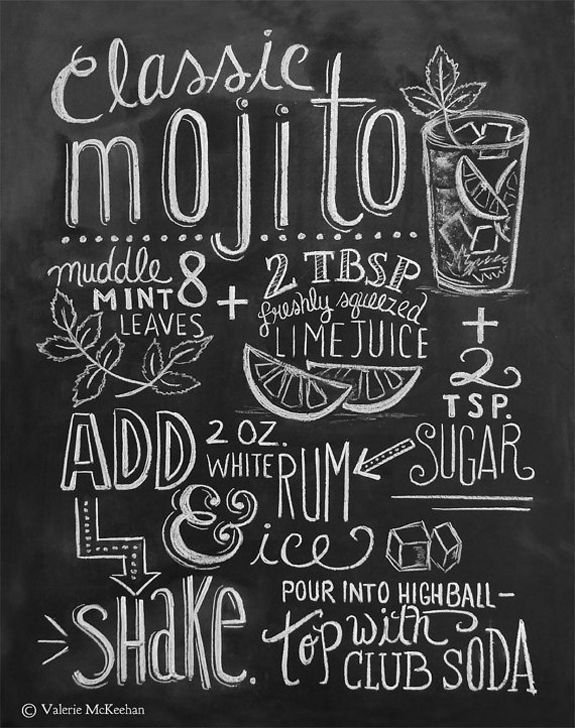 Classic
mojito
muddle 8
MINT
LEAVES
+
2 TBSP
freshly squeezed
LIME JUICE
+
2
TSP.
SUGAR
ADD 2 OZ.
WHITE RUM
& ice
SHaKe.
POUR INTO HIGHBALL–
top with
CLUB SODA
© Valerie McKeehan